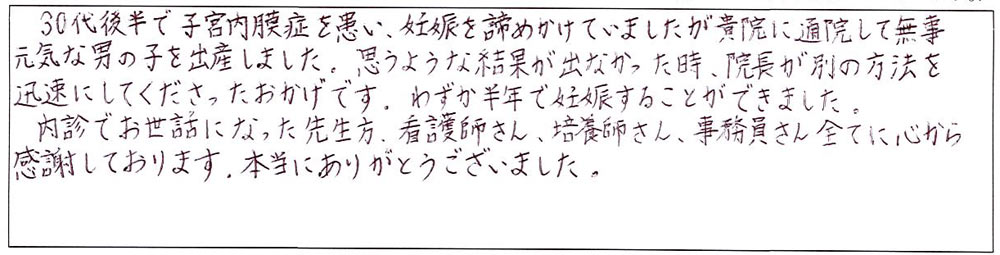 30代後半で子宮内膜症を患い、妊娠を諦めかけていましたが貴院に通院して無事
元気な男の子を出産しました。思うような結果が出なかった時、院長が別の方法を
迅速にしてくださったおかげです。わずか半年で妊娠することができました。
内診でお世話になった先生方、看護師さん、培養師さん、事務員さん全てに心から
感謝しております。本当にありがとうございました。